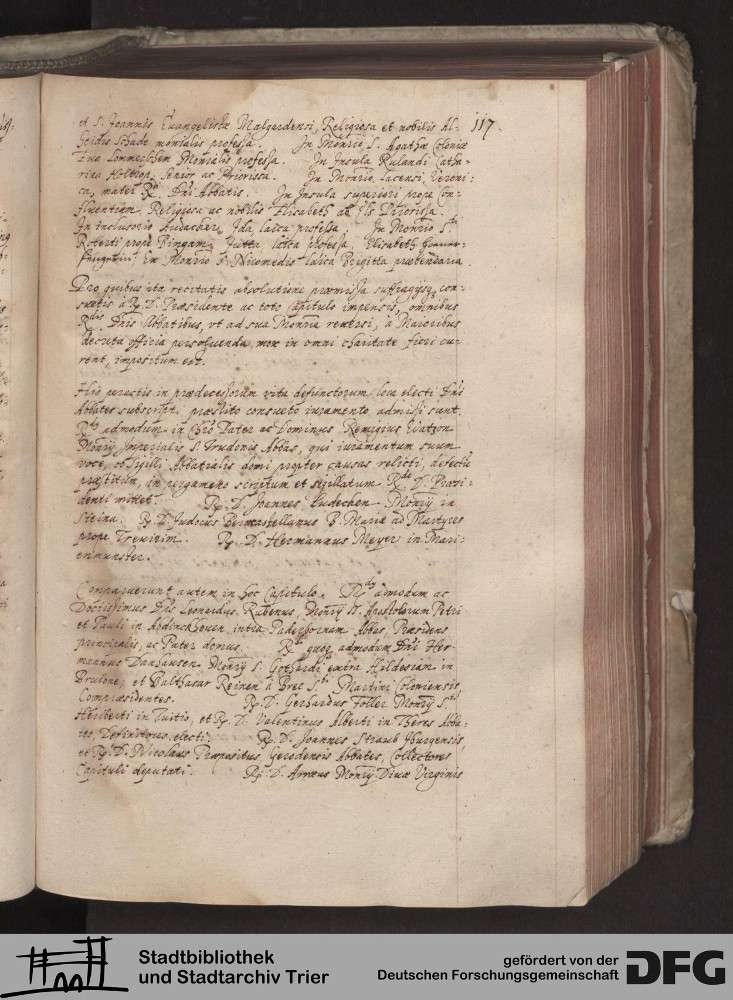 117.
et S. Joannis Euangelistæ Malgardensi, Religiosa et nobilis Al-
heidis Schade monialis professa. In Monrio S. Agathæ Coloniæ
Eua Lommerschem Monialis professa. In Insula Rulandi Catha-
rina Holtrop, Senior ac Priorissa. In Monrio Lacensi, Veroni-
ca, mater Rdi Dni Abbatis. In Insula superiori prope Con-
fluentiam, Religiosa ac nobilis Elisabeth ab Priorissa.
In inclusorio Andachar, Ida, laica professa. In Monrio Sti
Roberti prope Bingam, Jutta, laica professa, Elisabeth
Ex Monrio S. Nicomedis laica Brigitta præbendaria.
Pro quibus ita recitatis absolutione præmissa suffragijsq con-
suetis à R. D. Præsidente ac toto Capitulo impensis, omnibus
Rdis Dnis Abbatibus, vt ad sua Monria reuersi, à Maioribus
decreta officia persoluenda, mox in omni charitate fieri cu-
rent, impositum est.
His peractis in prædecessorum vita defunctorum loca electi Dni
Abbates subscripti, præstito consueto iuramento, admissi sunt.
Rdus admodum in Chro Pater ac Dominus Remigius Watzon
Monrij Imperialis S. Trudonis Abbas, qui iuramentum suum
voce, ob sigilli Abbatialis domi propter causas relicti, defectu
præstitum, in pergameno scriptum et sigillatum Rdo D. Præsi-
denti mittet. R. D. Joannes Ludechen Monrij in
Steina. R. D. Judocus Bercastellanus B. Mariæ ad Martyres
prope Treuirim. R. D. Hermannus Meyer in Mari-
enmunster.
Comparuerunt autem in hoc Capitulo. Rdus admodum ac
Doctissimus Dns Leonardus Rubenus, Monrij SS. Apostolorum Petri
et Pauli in Abdinckhouen intra Paderbornam Abbas, Præsidens
principalis, ac Pater domus. Rdi quoq admodum Dni Her-
mannus Danhausen Monrij S. Gothardi extra Hildesiam in
Brulone, et Balthasar Reinen à Brec Sti Martini Coloniensis,
Compræsidentes. R. D. Gerhardus Foller Monrij Sti
Heriberti in Tuitio, et R. D. Valentinus Alberti in Theres Abba-
tes, Definitores electi. R. D. Joannes Straub Iburgensis,
et R. D. Nicolaus Præpositus Gerodensis Abbates, Collectores
Capituli deputati. R. D. Monrij Diuæ Virginis
Stadtbibliothek
und Stadtarchiv Trier
gefördert von der
Deutschen Forschungsgemeinschaft
DFG